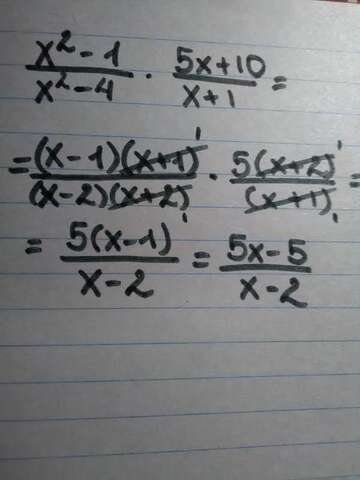 x² - 1 / x² - 4 · 5x + 10 / x + 1 =
= (x - 1)(x + 1) ¹ / (x - 2)(x + 2) ₁ · 5(x + 2) ¹ / (x + 1) ₁ =
= 5(x - 1) / x - 2 = 5x - 5 / x - 2